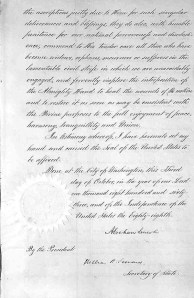 this ascription justly due to Him for such singular
deliverances and blessings, they do also, with humble
penitence for our national perverseness and disobedi-
ence, commend to his tender care all those who have
become widows, orphans, mourners or sufferers in the
lamentable civil strife in which we are unavoidably
engaged, and fervently implore the interposition of
the Almighty Hand to heal the wounds of the nation
and to restore it as soon as may be consistent with
the Divine purposes to the full enjoyment of peace,
harmony, tranquillity and Union.
In testimony whereof, I have hereunto set my
hand and caused the Seal of the United States to
be affixed.
Done at the City of Washington, this Third
day of October, in the year of our Lord
one thousand eight hundred and sixty-
three, and of the Independence of the
United States the Eighty-eighth.
Abraham Lincoln
By the President:
William H. Seward
Secretary of State